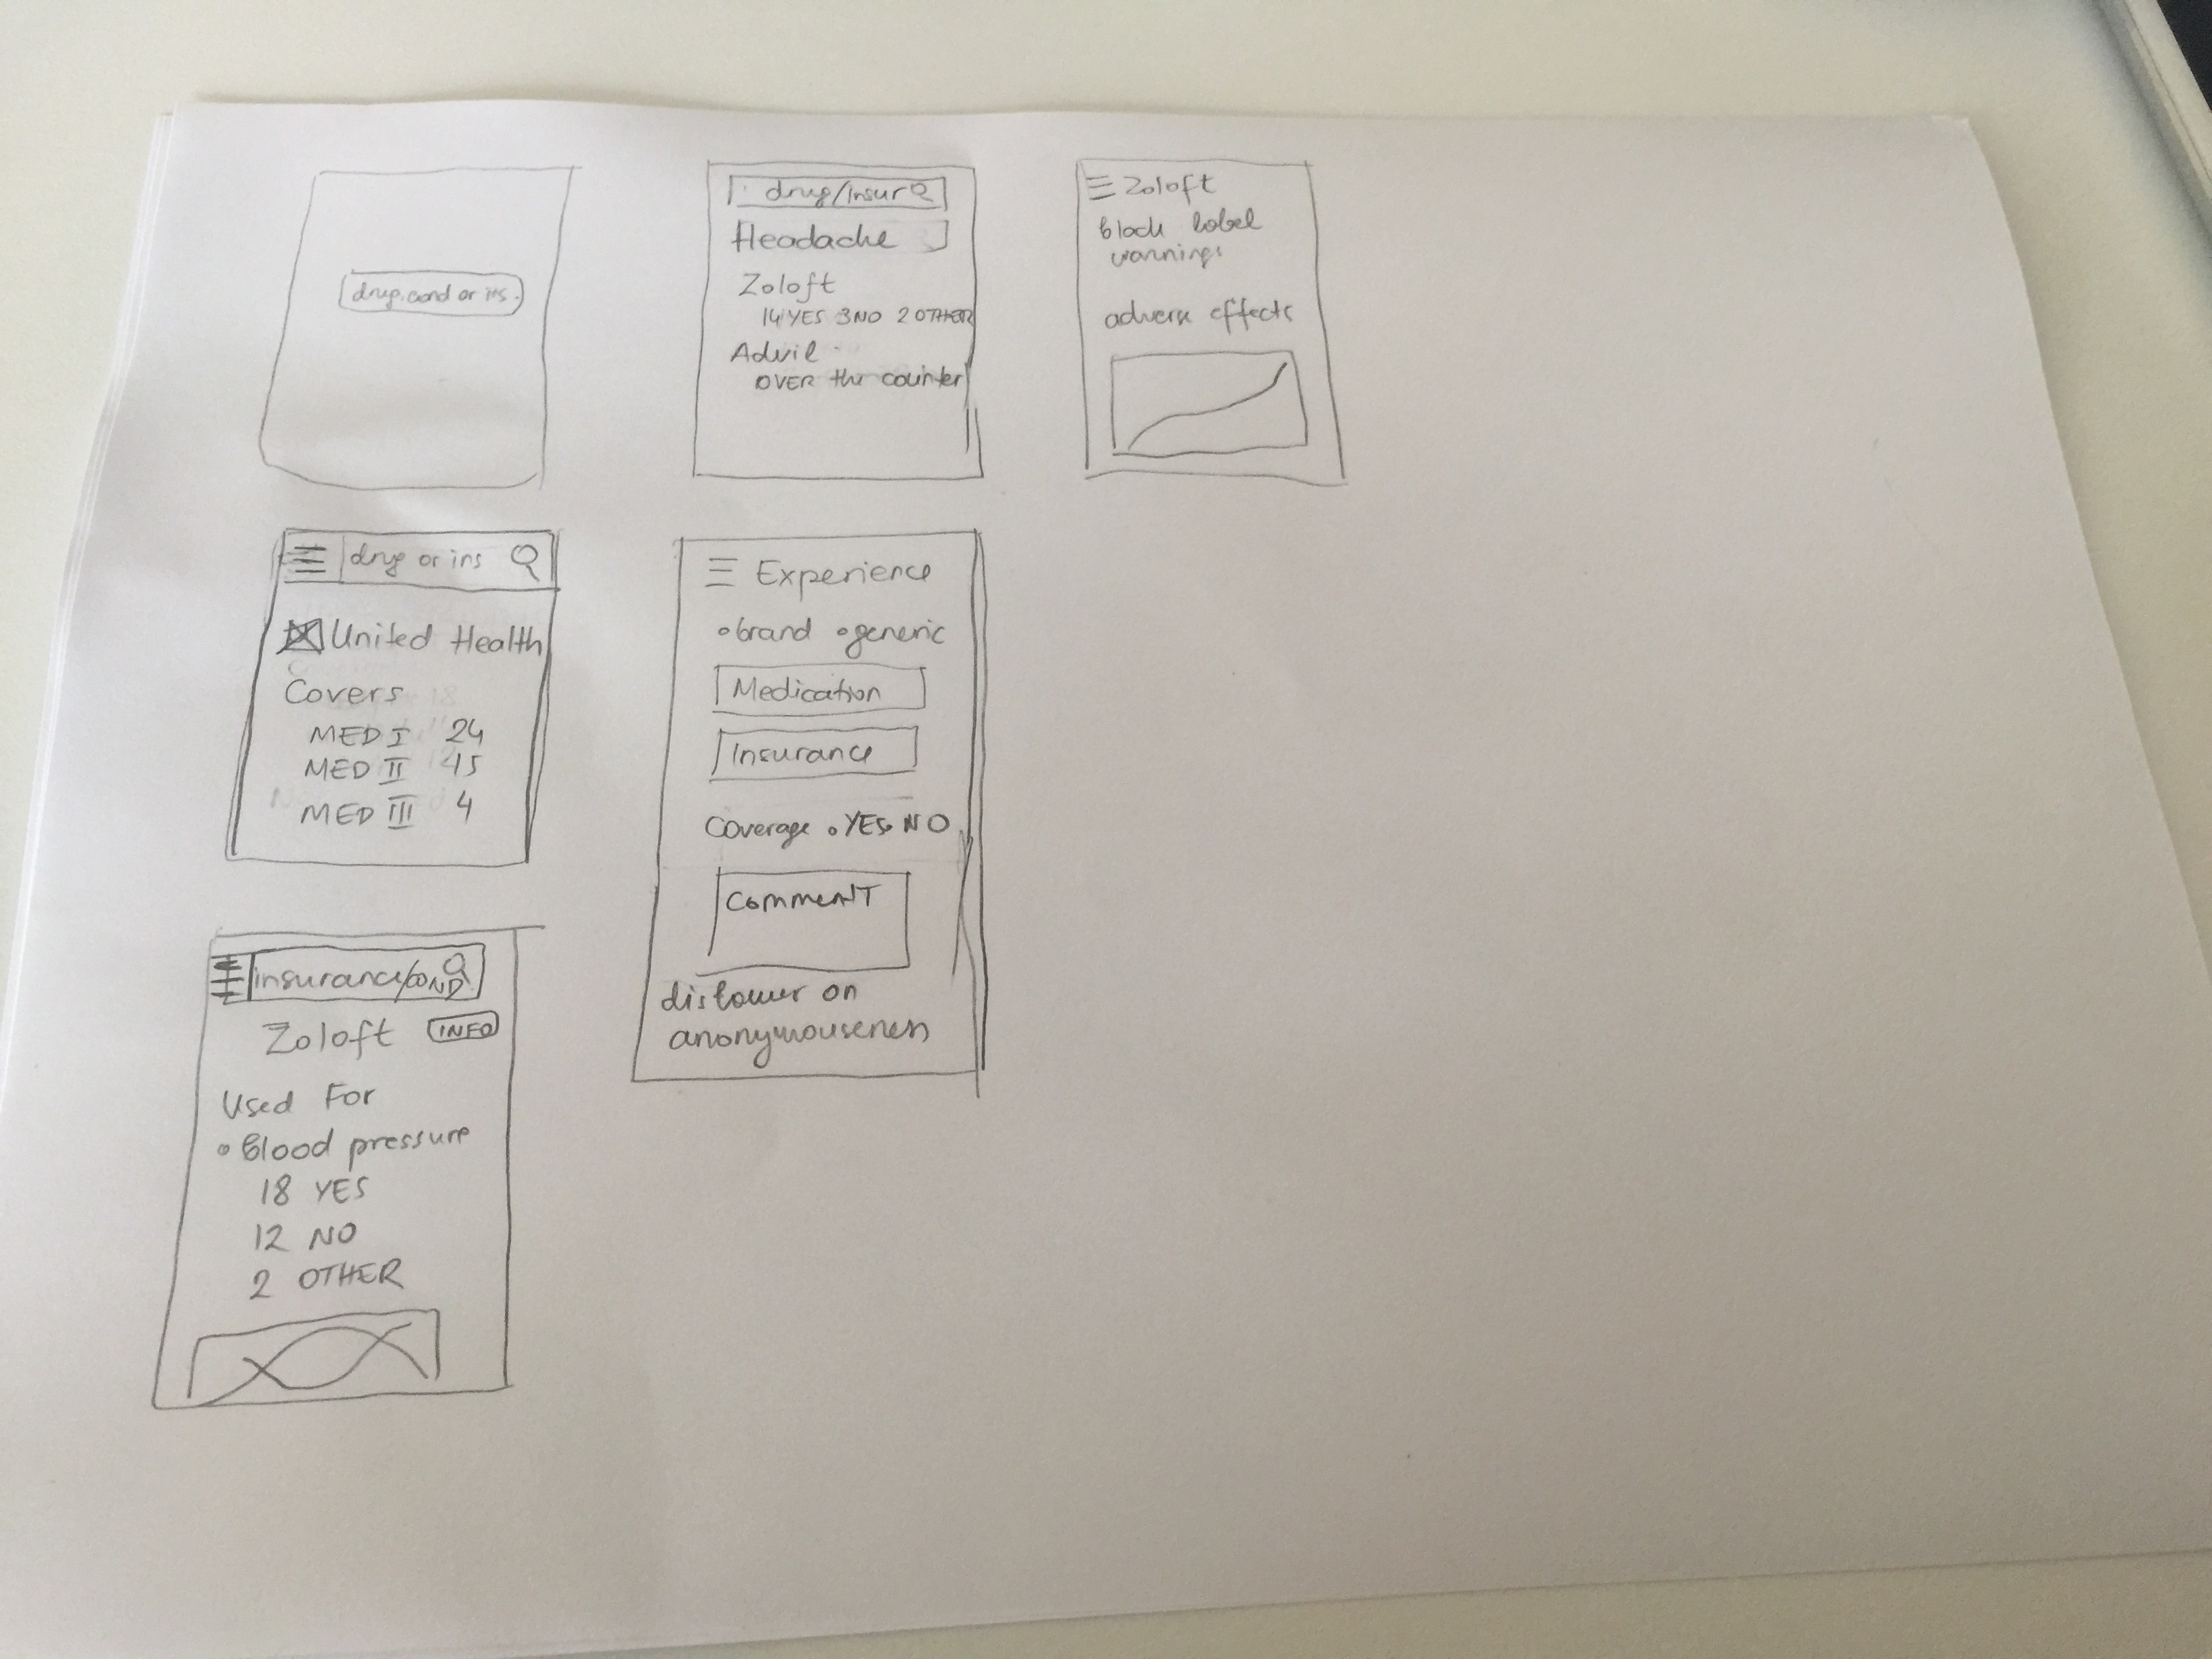 drug, cond or ins.
drug/insur
Headache
Zoloft
14 YES 3 NO 2 OTHER
Advil
OVER the counter
Zoloft
black label
warnings
adverse effects
drug or ins
United Health
Covers
MED I 24
MED II 15
MED III 4
Experience
brand generic
Medication
Insurance
Coverage YES NO
COMMENT
on
anonymouseness
insurance/COND
Zoloft INFO
Used For
Blood pressure
18 YES
12 NO
2 OTHER